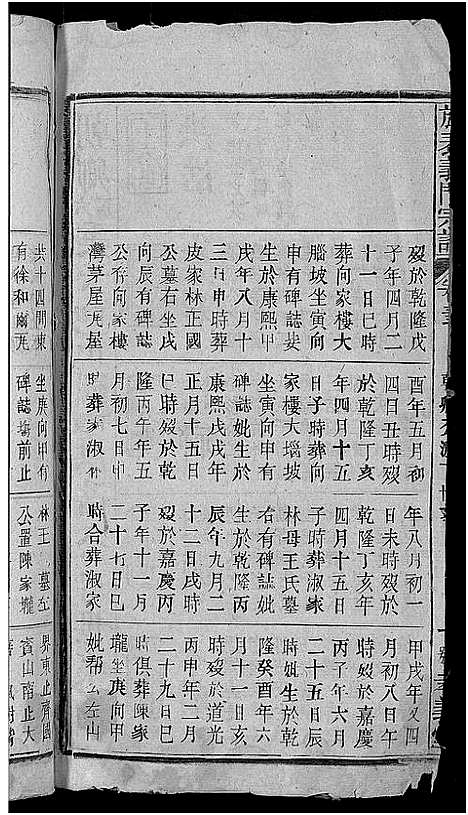 孝義門宗譜
殁於乾隆戊
子年四月二
十一日巳時
葬向家樓大
腦坡坐寅向
申有碑誌妣
生於康熙甲
戌年八月十
三日申時葬
皮家林正國
公墓右坐戌
向辰有碑誌
公存向家
灣茅屋瓦屋
共十四間東
有徐和爾瓦
酉年五月初
四日丑時殁
於乾隆丁亥
年四月十五
日子時葬向
家樓大塆坡
碑誌妣生於
康熙戊戌年
正月十五日
巳時殁於乾
隆丙午年五
月初七日申
時葬家淑林
坐庚向申有
碑誌塆前止
年八月初一
日未時殁於
乾隆丁亥年
四月十五日
子時葬淑家
林母王氏墓
右有碑誌妣
生於乾隆丙
辰年九月二
十二日戌時
殁於嘉慶丙
子年十一月
二十七日巳
時合葬淑家
林王 墓左
公置陳家壠
甲戌年又四
月初八日午
時殁於嘉慶
丙子年六月
二十五日辰
時妣生於乾
隆癸酉年六
月十一日亥
時殁於道光
丙申年二月
二十九日巳
時俱葬陳家
壠坐庚向甲
妣幫公左山
界東止齊園
賓山南止大